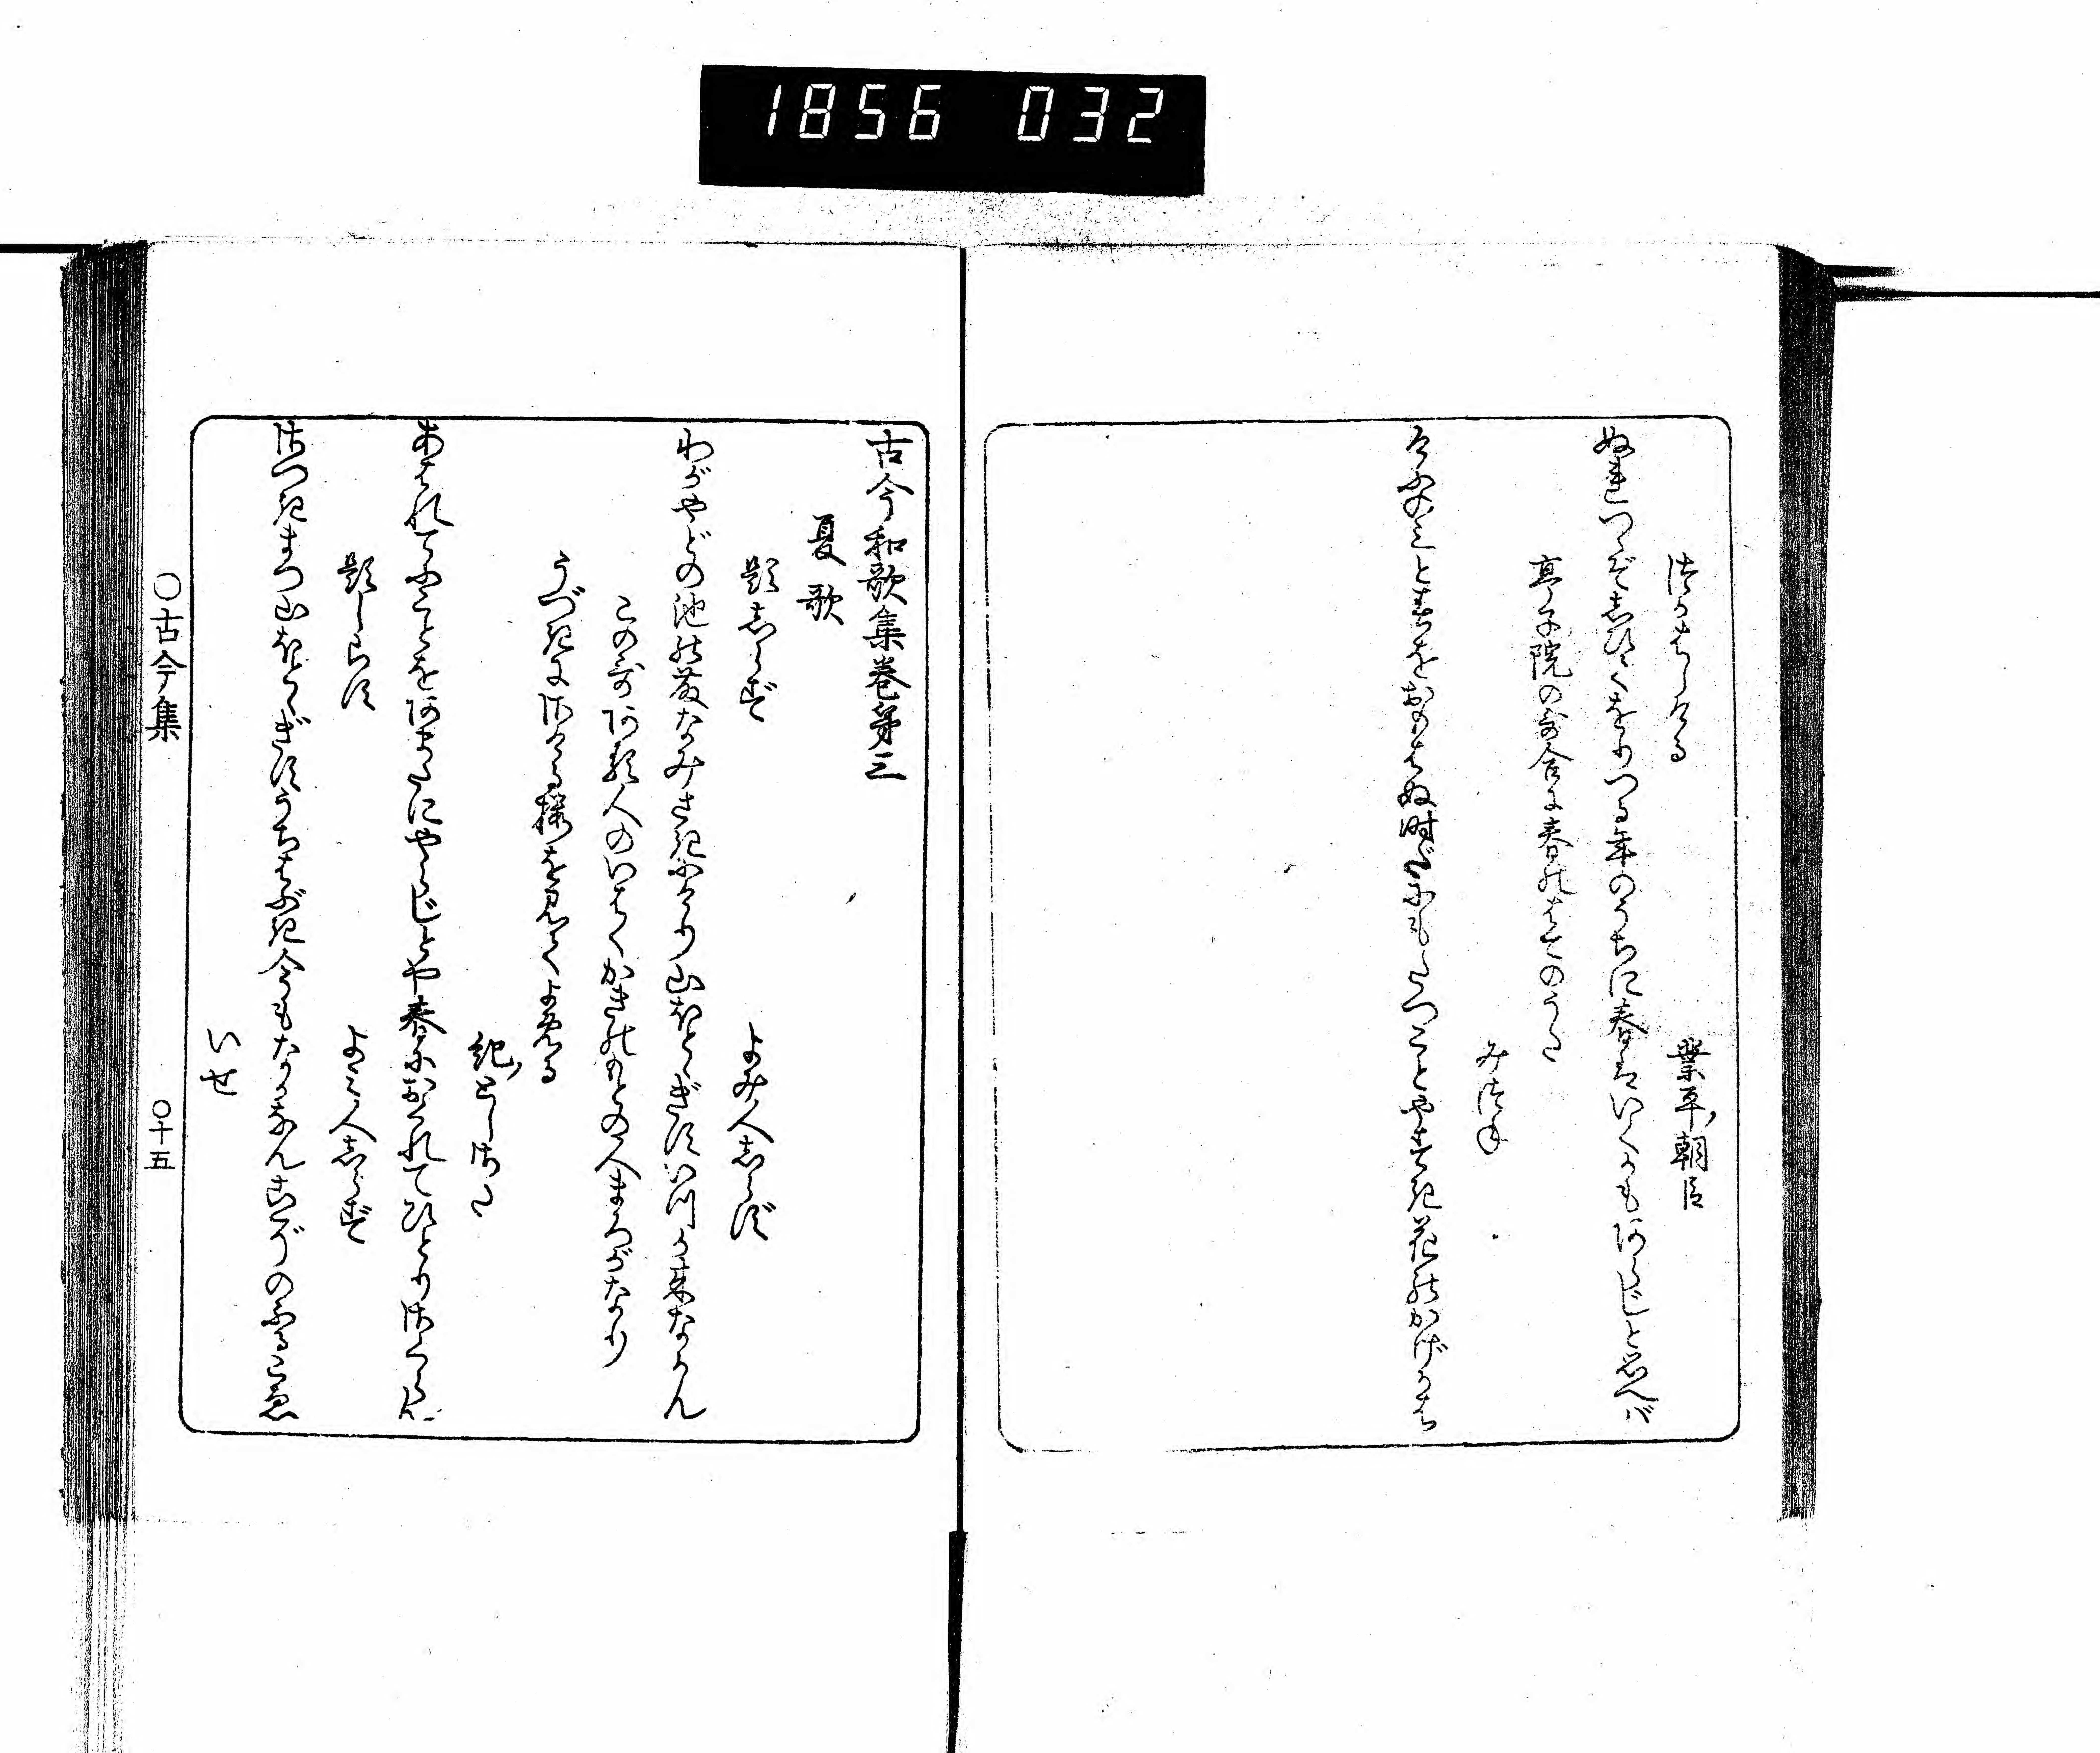 1856 032
つかはしける
業平朝臣
ぬれつゝぞしひてをりつる年のうちに春はいくかもあらじと思へば
亭子院の哥合に春のはてのうた
みつね
けふのみと春をおもはぬ時だにもたつことやすき花のかげかは
古今和歌集巻第三
夏歌
題しらず
よみ人しらず
わがやどの池の藤なみさきにけり山ほとゝぎすいつか来なかん
この哥ある人のいはくかきのもとの人まろがなり
うづきにさける櫻を見てよめる
紀としさだ
あはれてふことをあまたにやらじとや春におくれてひとりさくらん
題しらす
よみ人しらず
さつきまつ山ほとゝぎすうちはぶき今もなかなんこぞのふるこゑ
いせ
○古今集
○十五